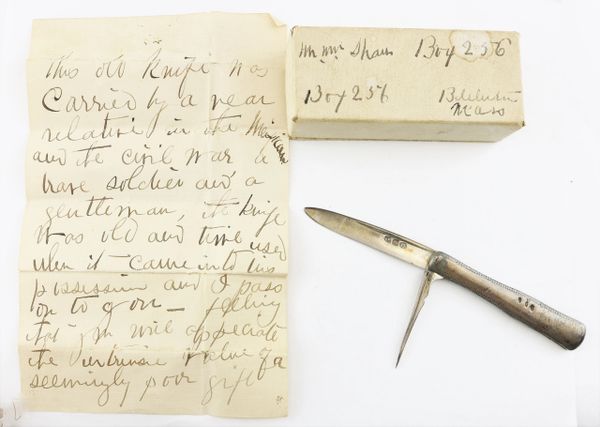 This old knife was
Carried by a near
relative in the Mexican
and the civil war a
brave soldier and a
gentleman, the knife
was old and time used
when it came into his
possession and I pass
on to you — feeling
that you will appreciate
the intrinsic value of a
seemingly poor gift
Wm Shaw Box 256
Box 256
Mass